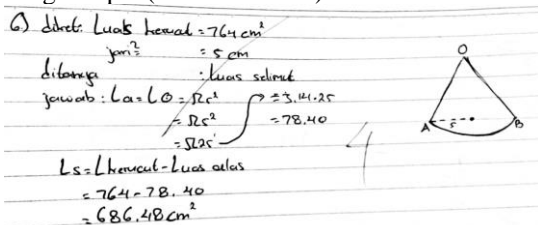 6) diket: Luas kerucut = 764 cm²
jari² = 5 cm
ditanya : luas selimut
jawab : La = LO = πr² → = 3,14.25
= π5² = 78.40
= π25
Ls = Lkerucut - Luas alas
= 764 - 78.40
= 686.48 cm²
O
A 5 B
4